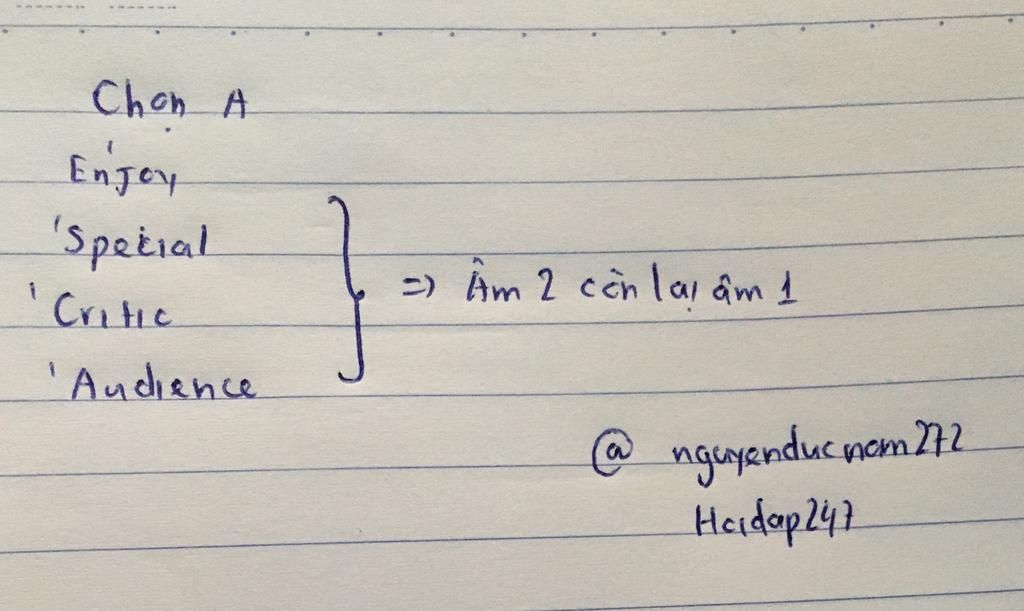 Chọn A
En'joy
'Special
'Critic
'Audience
=) Âm 2 còn lại âm 1
@ nguyenducnam272
Hoidap247